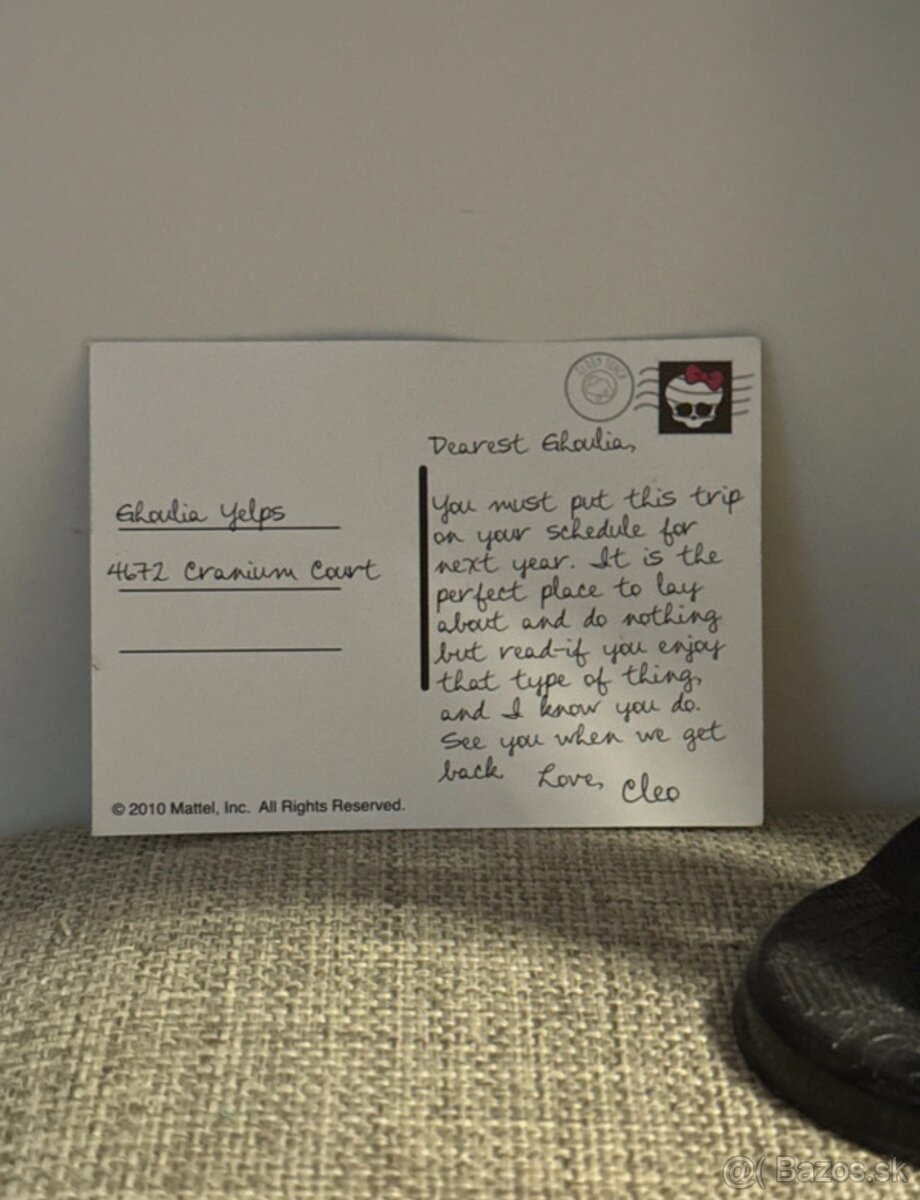 Dearest Ghoulia,
You must put this trip
on your schedule for
next year. It is the
perfect place to lay
about and do nothing
but read-if you enjoy
that type of thing,
and I know you do.
See you when we get
back Love, Cleo
Ghoulia Yelps
4672 Cranium Court
© 2010 Mattel, Inc. All Rights Reserved.
@( Bazos.sk